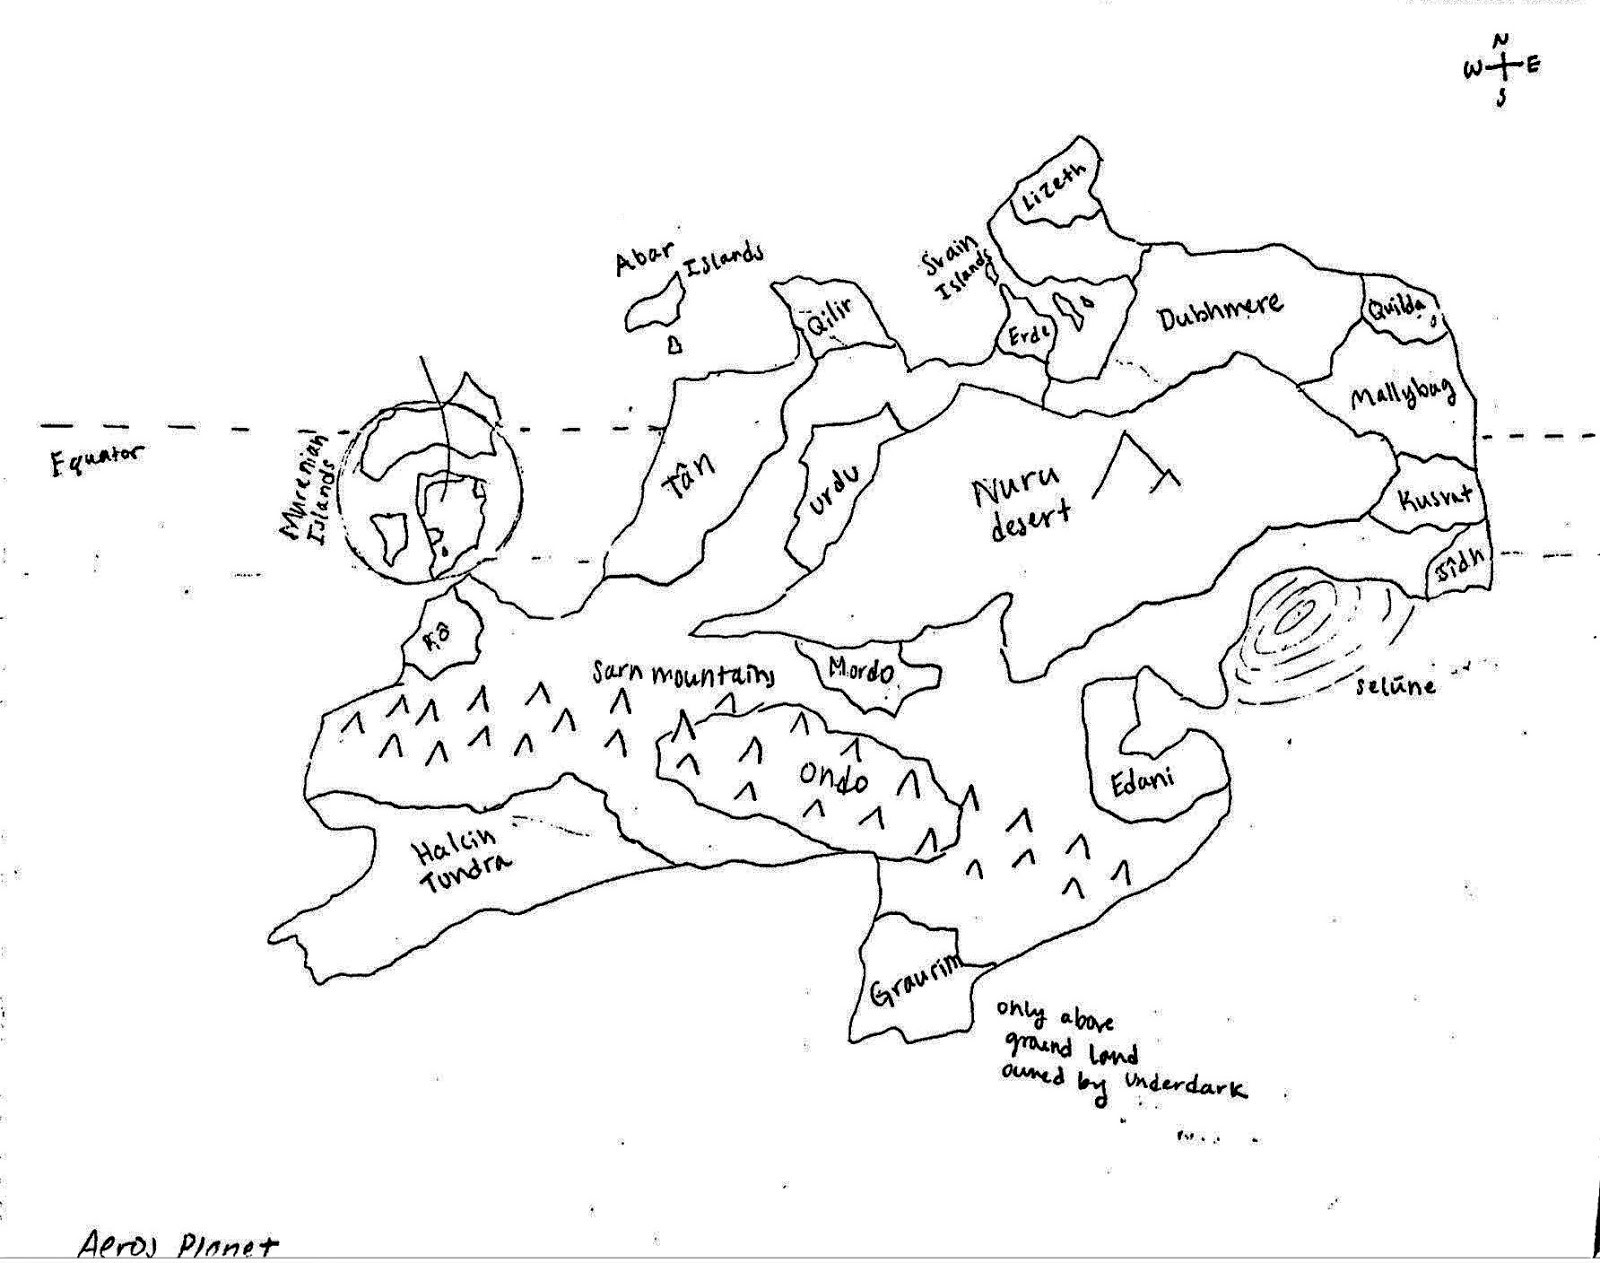 N
W E
S
Lizeth
Abar
Islands
Srain
Islands
Qilir
Erde
Dubhmere
Quilda
Mallybag
Equator
Murenian
Islands
Tân
urdu
Nuru
desert
Kusrat
Jîdh
Râ
Sarn mountains
Mordo
selūne
Ondo
Edani
Halcin
Tundra
Graurim
only above
ground land
owned by underdark
Aeros Planet